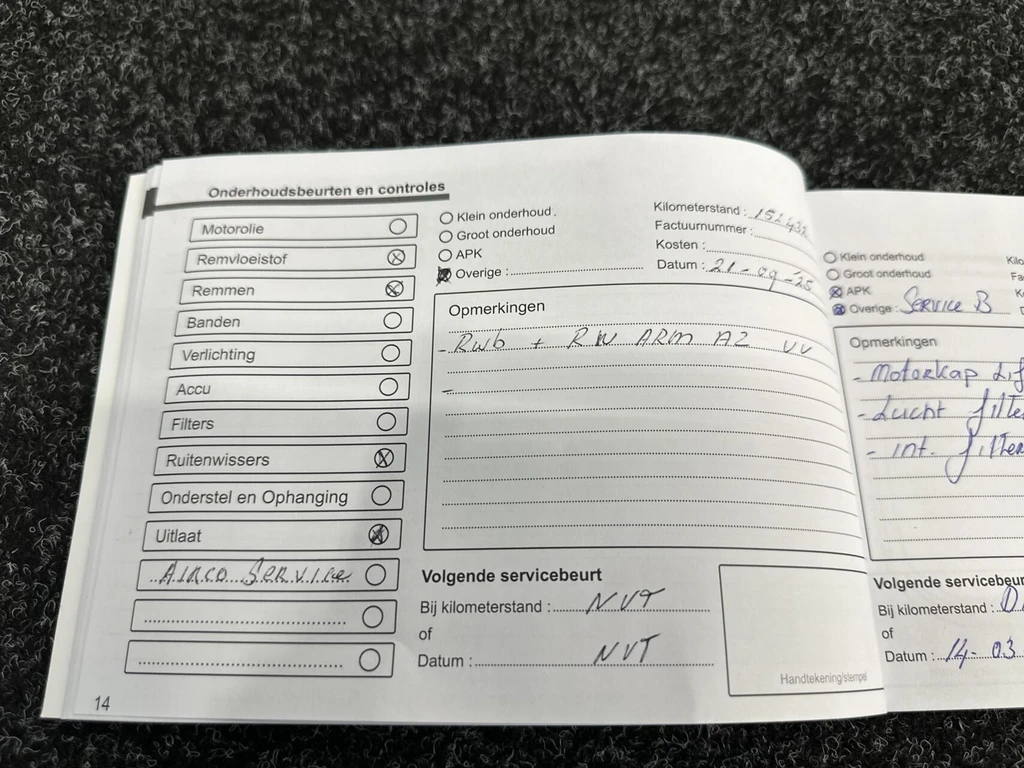 Onderhoudsbeurten en controles
Motorolie
Remvloeistof
Remmen
Banden
Verlichting
Accu
Filters
Ruitenwissers
Onderstel en Ophanging
Uitlaat
Airco Service
Klein onderhoud.
Groot onderhoud
APK
Overige :
Kilometerstand :
Factuurnummer :
Kosten :
Datum : 21-09-'25
Opmerkingen
- RWb + RW ARM AZ VV
-
Volgende servicebeurt
Bij kilometerstand : NVT
of
Datum : NVT
Handtekening/stempel
14
Klein onderhoud
Groot onderhoud
APK
Overige : Service B
Opmerkingen
- Motorkap
- Lucht
- int. filter
Volgende servicebeur
Bij kilometerstand :
of
Datum : 14-03